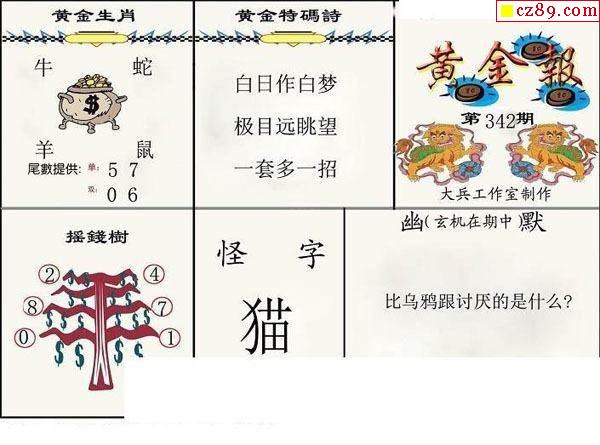 cz89.com
黄金生肖
牛 蛇
$
羊 鼠
尾數提供: 单: 5 7
双: 0 6
黄金特碼詩
白日作白梦
极目远眺望
一套多一招
黄金報
第342期
大兵工作室制作
摇錢樹
2 4
8 7
0 1
$ $ $ $ $ $ $ $
怪 字
猫
幽(玄机在期中)默
比乌鸦跟讨厌的是什么?